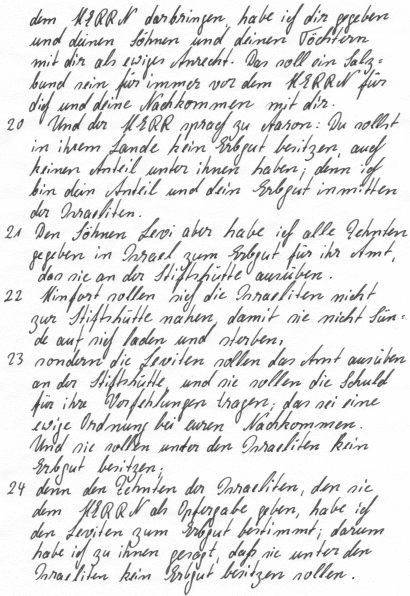 dem HERRN darbringen, habe ich dir gegeben
und deinen Söhnen und deinen Töchtern
mit dir als ewiges Anrecht. Das soll ein Salz=
bund sein für immer vor dem HERRN für
dich und deine Nachkommen mit dir.
20 Und der HERR sprach zu Aaron: Du sollst
in ihrem Lande kein Erbgut besitzen, auch
keinen Anteil unter ihnen haben; denn ich
bin dein Anteil und dein Erbgut inmitten
der Israeliten.
21 Den Söhnen Levi aber habe ich alle Zehnten
gegeben in Israel zum Erbgut für ihr Amt,
das sie an der Stiftshütte ausüben.
22 Hinfort sollen sich die Israeliten nicht
zur Stiftshütte nahen, damit sie nicht Sün=
de auf sich laden und sterben,
23 sondern die Leviten sollen das Amt ausüben
an der Stiftshütte, und sie sollen die Schuld
für ihre Verfehlungen tragen; das sei eine
ewige Ordnung bei euren Nachkommen.
Und sie sollen unter den Israeliten kein
Erbgut besitzen;
24 denn den Zehnten der Israeliten, den sie
dem HERRN als Opfergabe geben, habe ich
den Leviten zum Erbgut bestimmt; darum
habe ich zu ihnen gesagt, daß sie unter den
Israeliten kein Erbgut besitzen sollen.